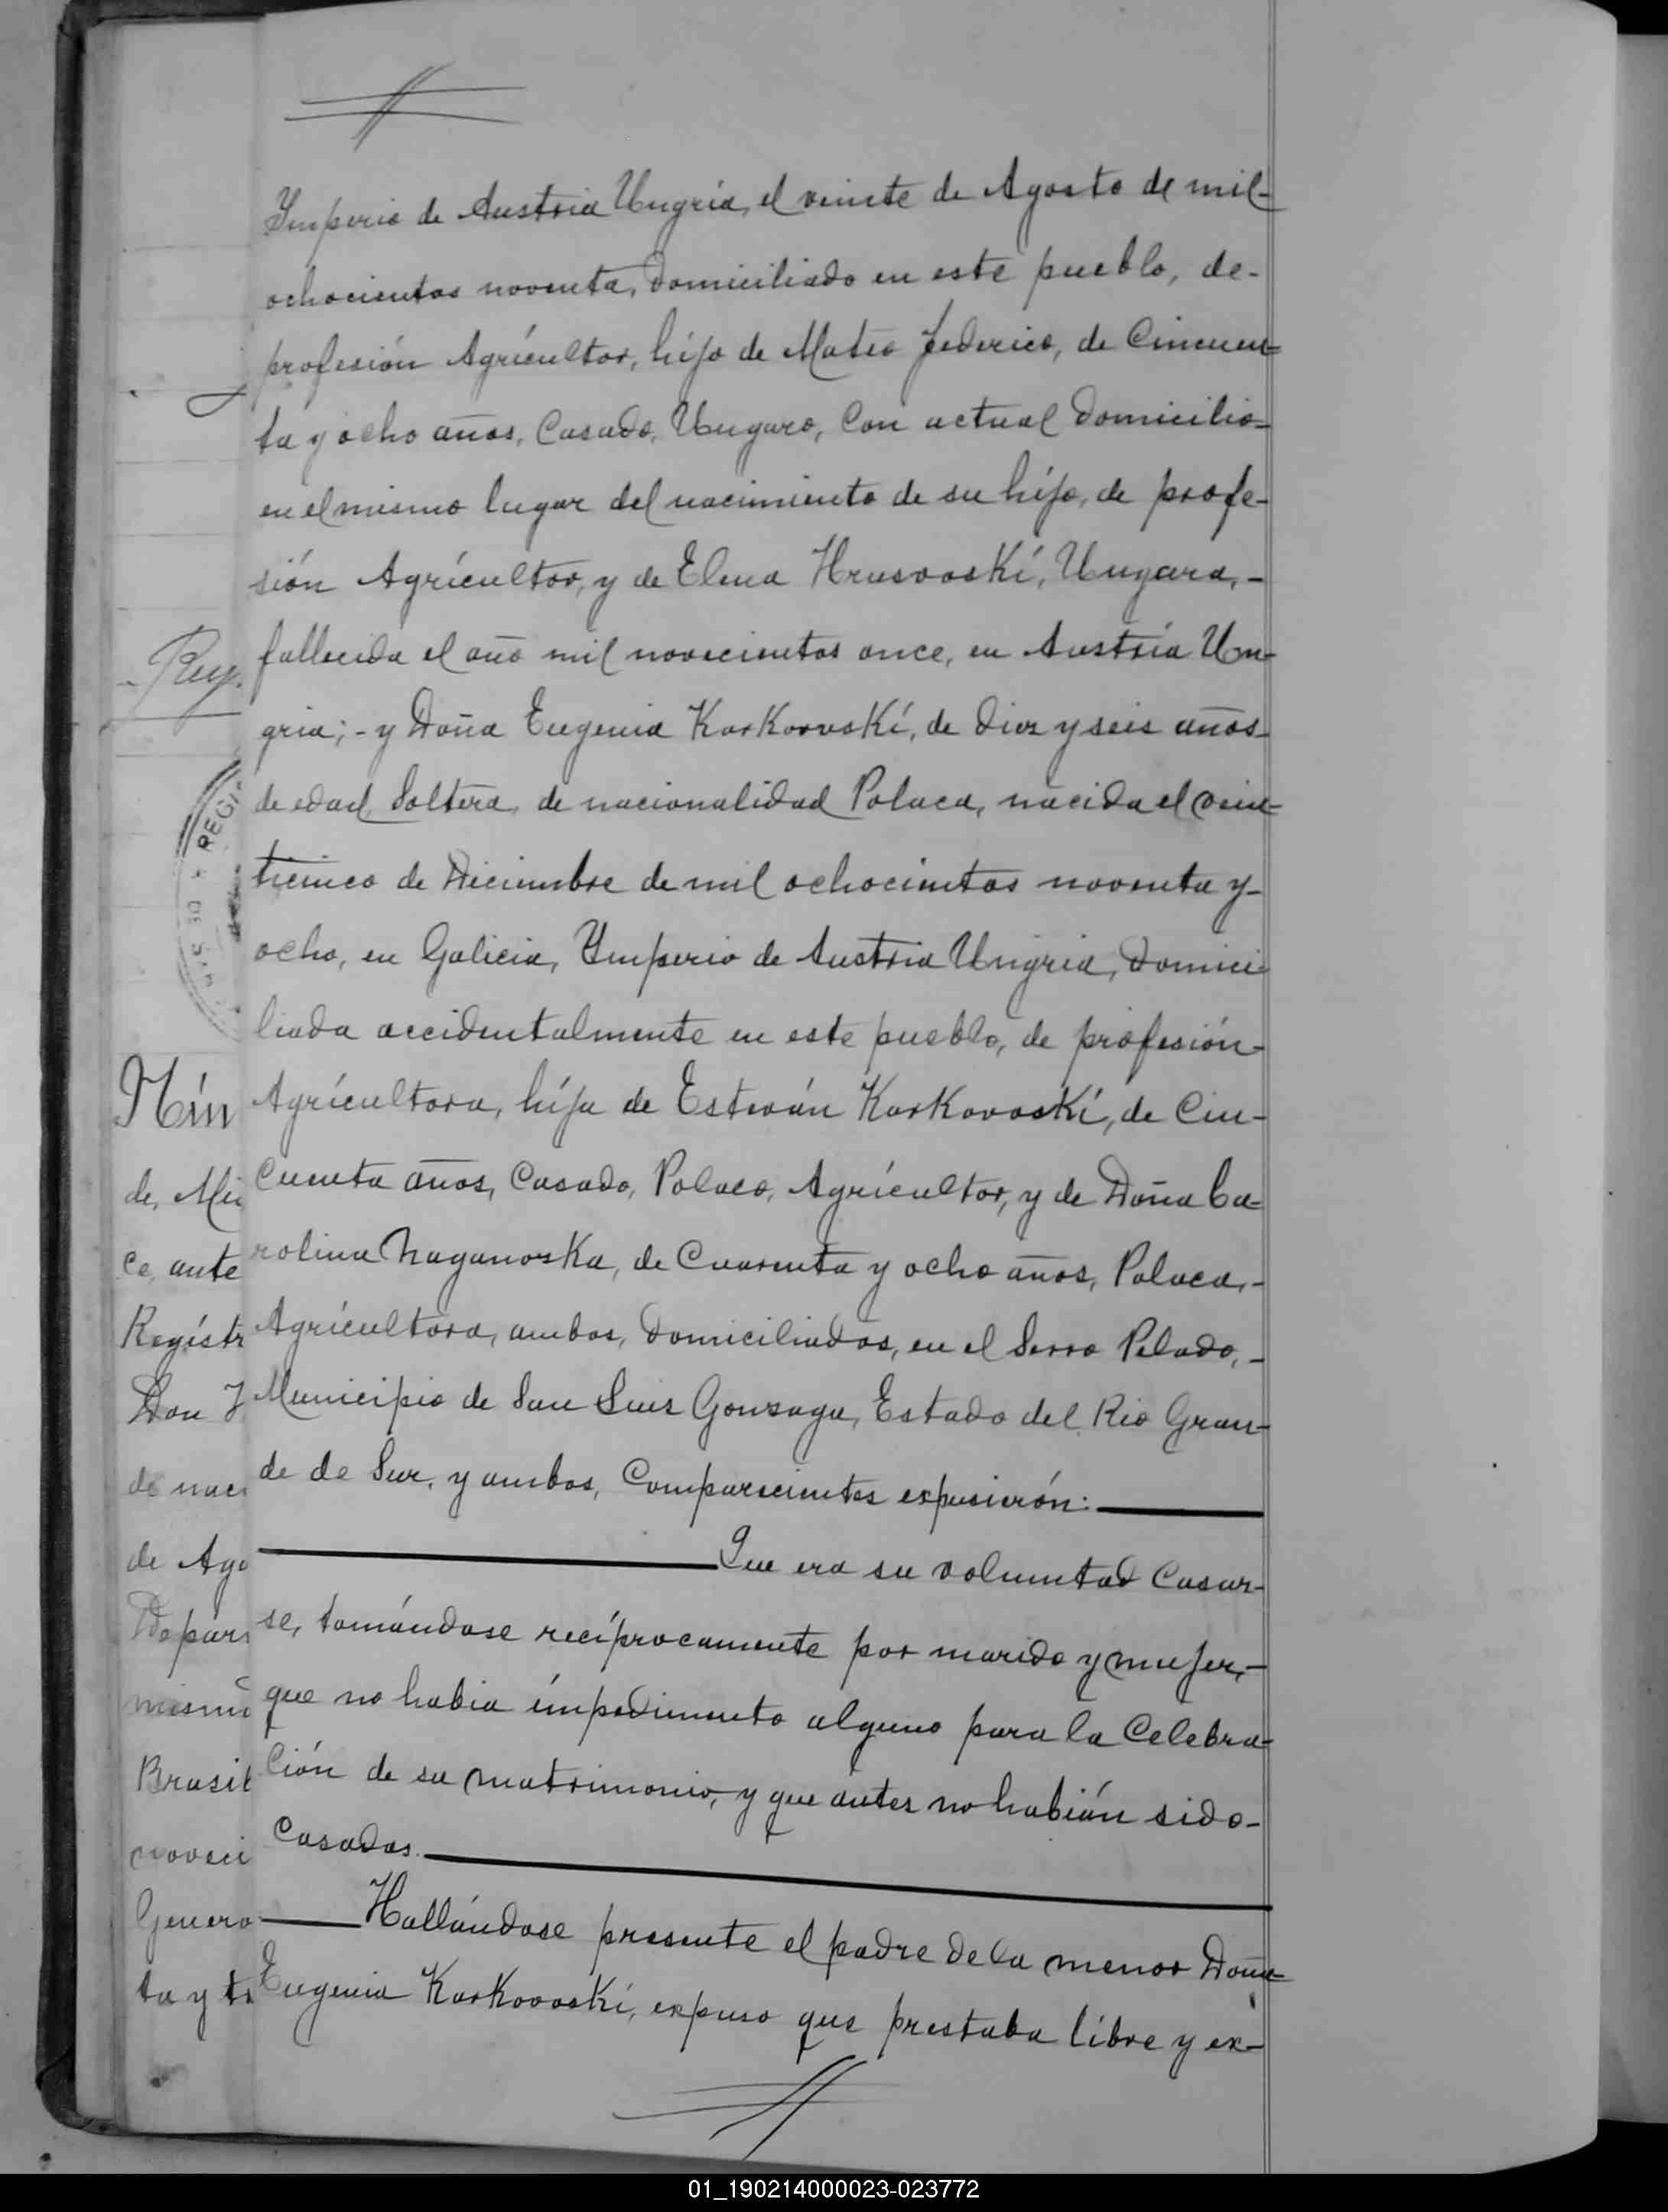 Ymperio de Austria Ungria, el veinte de Agosto de mil-
ochocientos noventa, domiciliado en este pueblo, de-
profesión Agrícultor, híjo de Mateo Federico, de Cincuen-
ta y ocho años, Casado, Ungaro, Con actual domicilio-
en el mismo lugar del nacimiento de su híjo, de profe-
sión Agrícultor, y de Elena Hrusvoskí, Ungara,-
fallecida el año mil novecientos once, en Austría Un-
gria;- y Doña Eugenia Karkorvskí, de diez y seis años-
de edad, Soltera, de nacionalidad Polaca, nacida el vein-
ticinco de Diciembre de mil ochocientos noventa y-
ocho, en Galicia, Ymperio de Austria Ungria, domici-
liada accidentalmente en este pueblo, de profesión-
Agrícultora, híja de Esteván Karkovoskí, de Cin-
cuenta años, Casado, Polaco, Agrícultor, y de Doña Ca-
rolina Naganoska, de Cuarenta y ocho años, Polaca,-
Agrícultora, ambos, domiciliados, en el Serro Pelado,-
Municipio de San Luis Gonzaga, Estado del Rio Gran-
de de Sur, y ambos, Comparecientes expusierón:
Que era su voluntad Casar-
se, tomándose recíprocamente por marido y mujer,-
que no habia ímpedimento alguno para la Celebra-
ción de su matrimonio, y que antes no habián sido-
Casados.
Hallándose presente el padre de la menor Doña
Eugenia Karkovoskí, expuso que prestaba líbre y ex-
Reg.
REGI
Nún
de, Mi
ce, ante
Regístr
Don J
de naci
de Ago
Depar
mism
Brasil
noveci
Genero
ta y tr
01_190214000023-023772